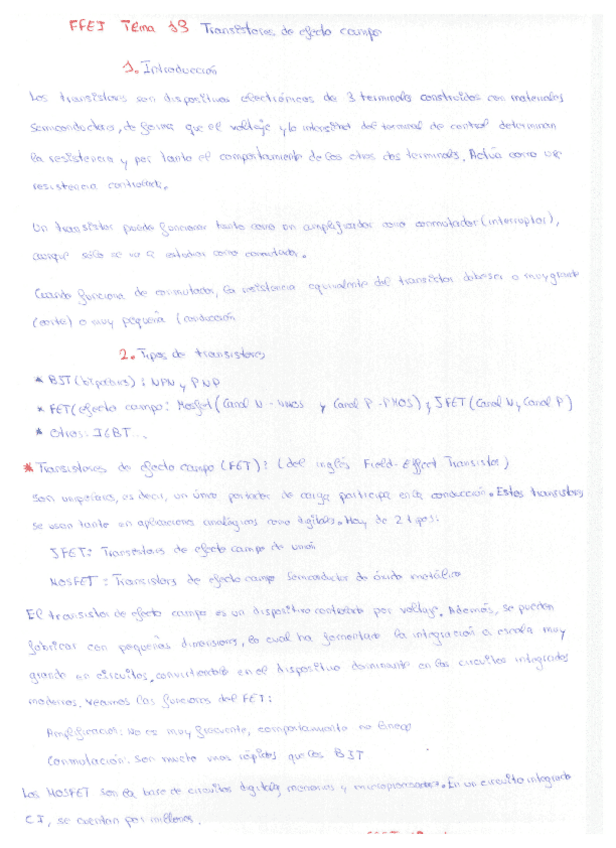 FFEI Tema 13 Transistores de efecto campo
1. Introducción
Los transistores son dispositivos electrónicos de 3 terminales construidos con materiales
semiconductores, de forma que el voltaje y la intensidad del terminal de control determinan
la resistencia y por tanto el comportamiento de los otros dos terminales. Actúa como una
resistencia controlada.
Un transistor puede funcionar tanto como un amplificador como conmutador (interruptor),
aunque sólo se va a estudiar como conmutador.
Cuando funciona de conmutador, la resistencia equivalente del transistor debe ser o muy grande
(corte) o muy pequeña (conducción
2. Tipos de transistores
* BJT (bipolares): NPN y PNP
* FET (efecto campo: Mosfet (Canal N - NMOS y Canal P - PMOS) y JFET (Canal N y Canal P)
* Otros: IGBT...
* Transistores de efecto campo (FET): (del inglés Field-Effect Transistor)
Son unipolares, es decir, un único portador de carga participa en la conducción. Estos transistores
se usan tanto en aplicaciones analógicas como digitales. Hay de 2 tipos:
JFET: Transistores de efecto campo de unión
MOSFET: Transistores de efecto campo Semiconductor de óxido metálico
El transistor de efecto campo es un dispositivo controlado por voltaje. Además, se pueden
fabricar con pequeñas dimensiones, lo cual ha fomentado la integración a escala muy
grande en circuitos, convirtiendolo en el dispositivo dominante en los circuitos integrados
modernos, veamos las funciones del FET:
Amplificación: No es muy frecuente, comportamiento no lineal
Conmutación: Son mucho más rápidos que los BJT
Los MOSFET son la base de circuitos digitales, memorias y microprocesadores. En un circuito integrado
CI, se cuentan por millones.